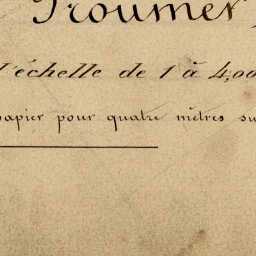 Troumer
l'échelle de 1 à 4,00
papier pour quatre mètres su